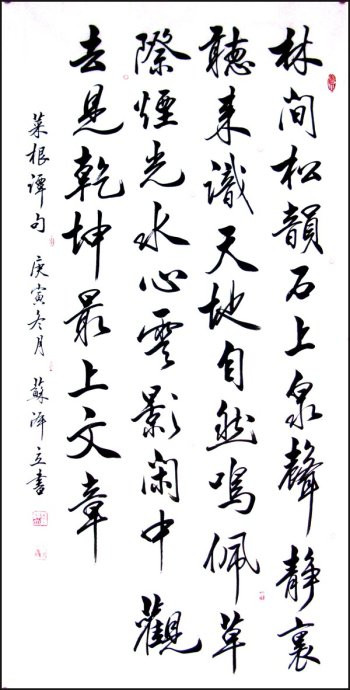 林間松韻石上泉聲静裏
聽来識天地自然鳴佩草
際煙光水心雲影閑中觀
去見乾坤最上文章
菜根譚句 庚寅冬月 蘇泽立書